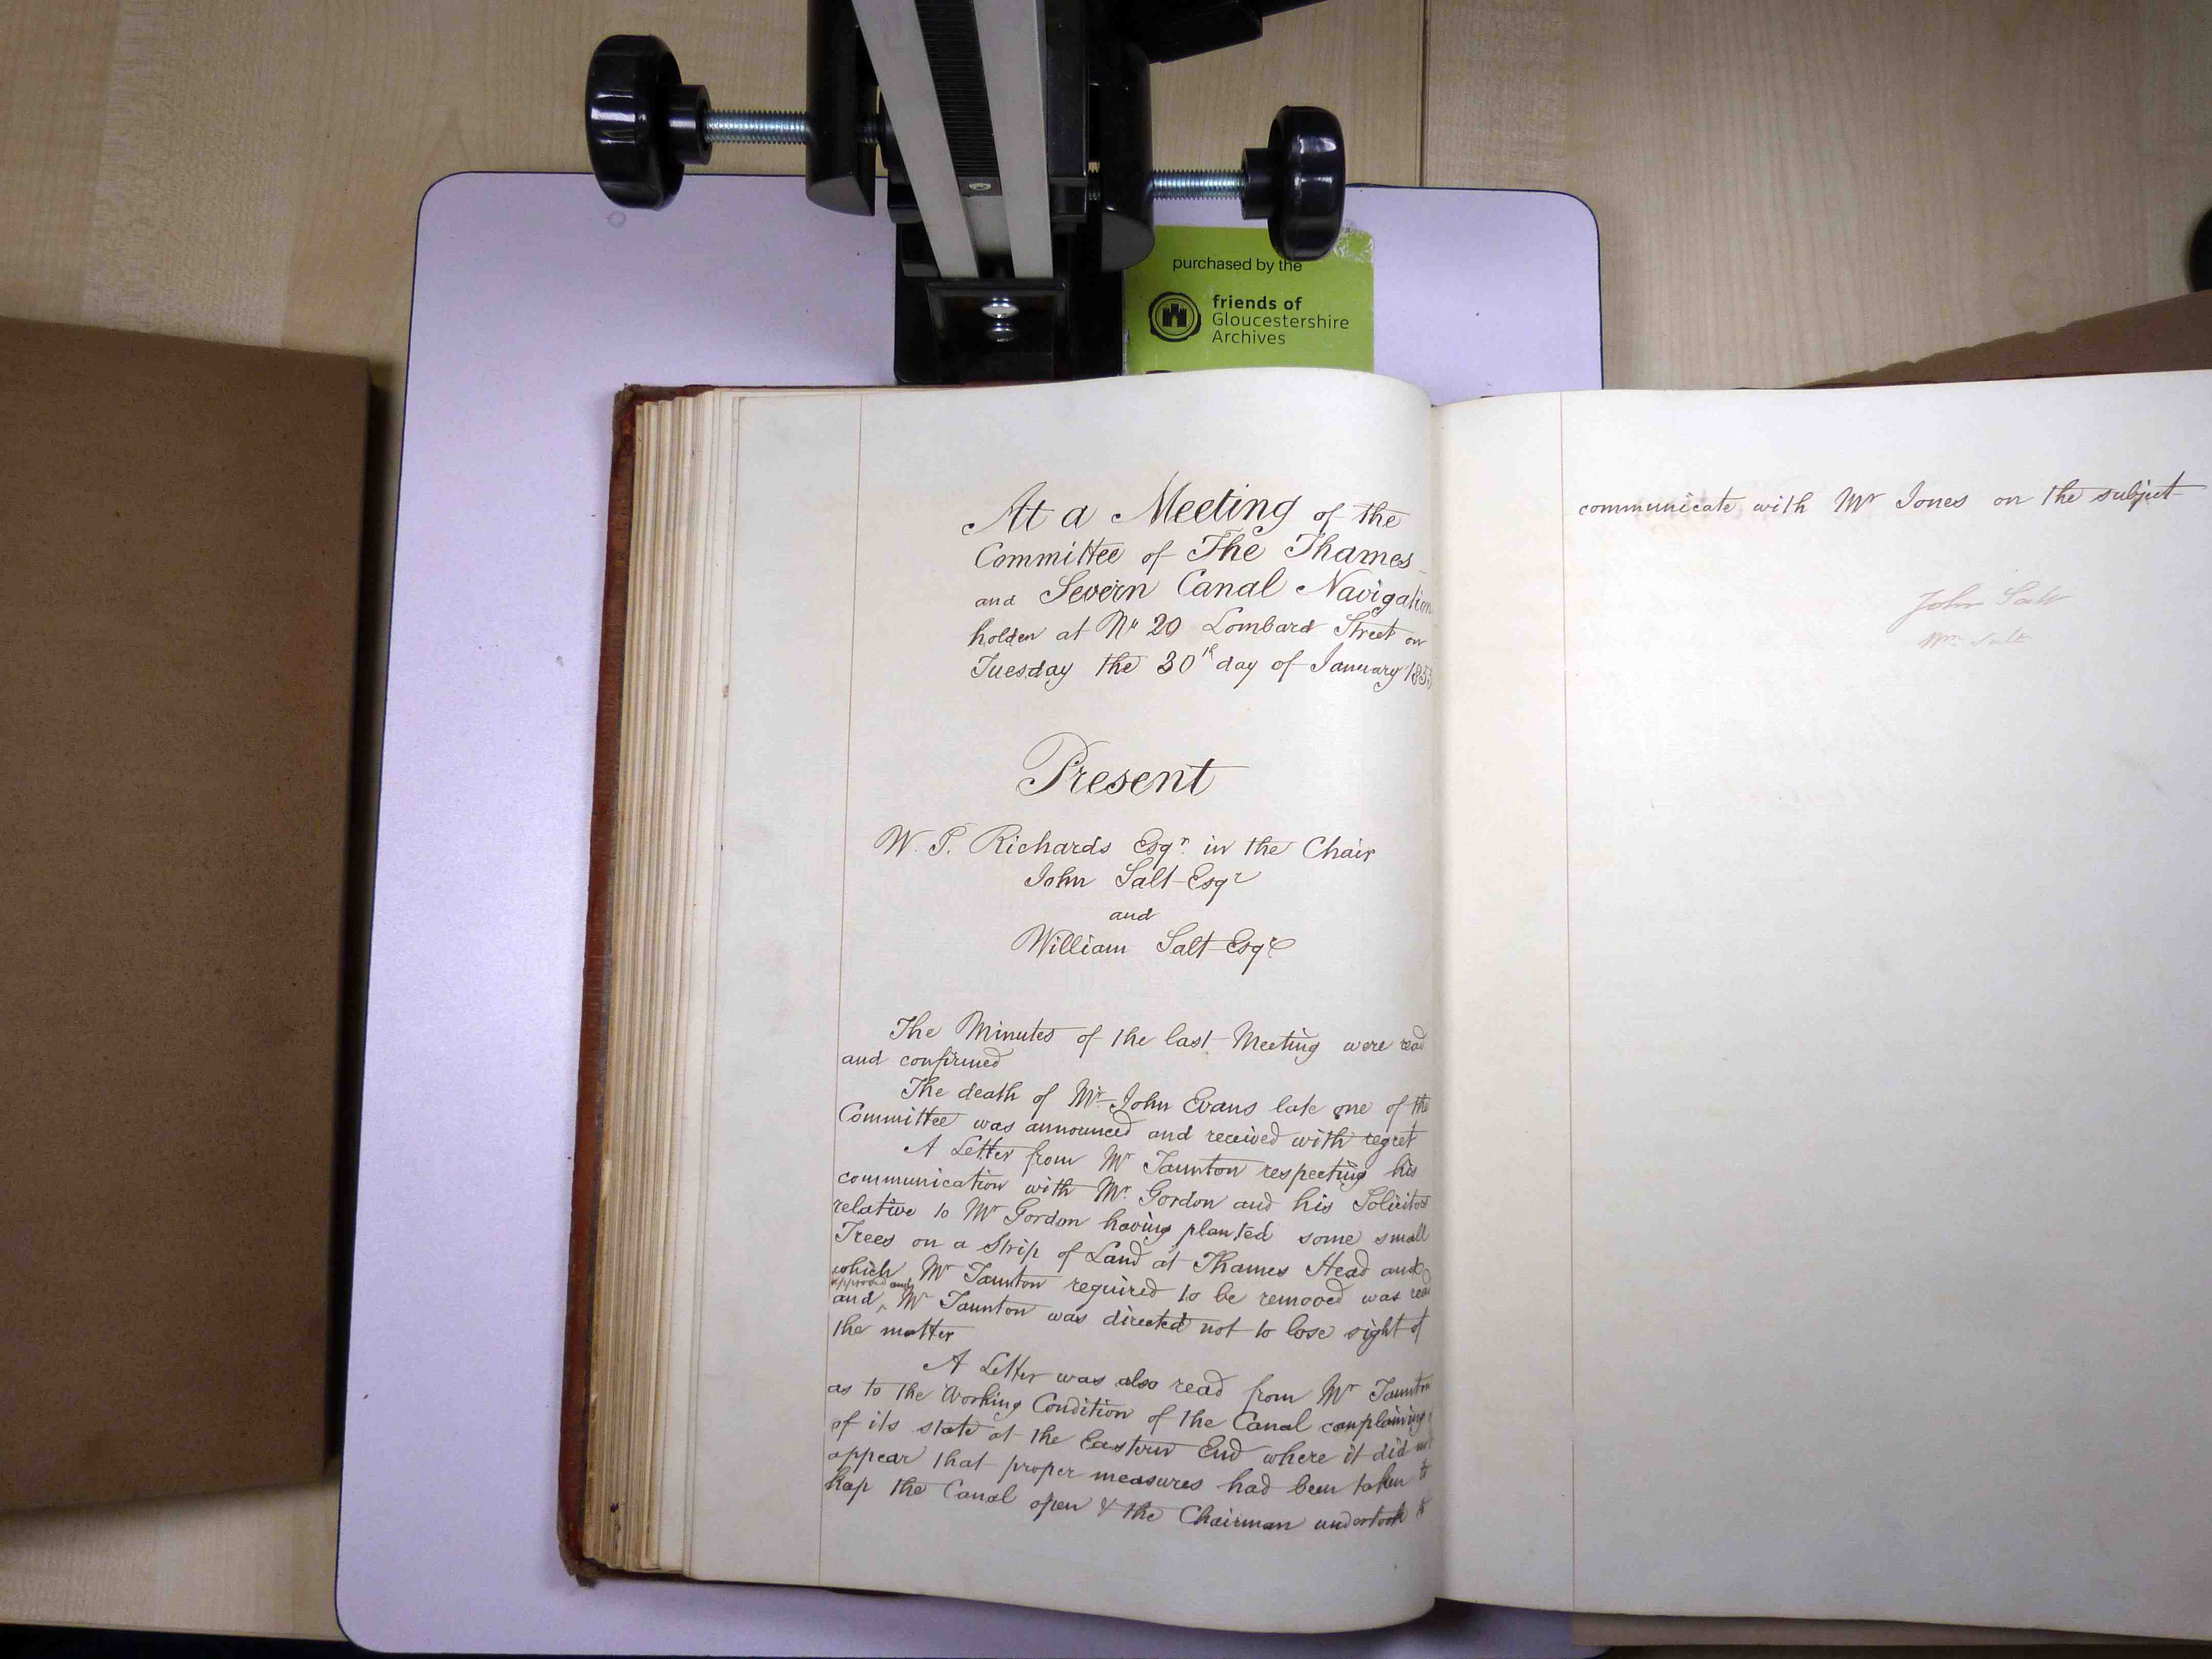 purchased by the
friends of
Gloucestershire
Archives
At a Meeting of the
Committee of The Thames
and Severn Canal Navigation
holden at No 20 Lombard Street on
Tuesday the 30th day of January 185
Present
W. P. Richards Esqr. in the Chair
John Salt Esqr
and
William Salt Esqre
The Minutes of the last Meeting were read
and confirmed
The death of Mr John Evans late one of the
Committee was announced and received with regret
A Letter from Mr Taunton respecting his
communication with Mr. Gordon and his Solicitor
relative to Mr Gordon having planted some small
Trees on a Strip of Land at Thames Head and
which Mr Taunton required to be removed was read
approved and
and ‸ Mr Taunton was directed not to lose sight of
the matter
A Letter was also read from Mr Taunton
as to the Working Condition of the Canal complaining
of its state at the Eastern End where it did not
appear that proper measures had been taken to
keep the Canal open & the Chairman undertook to
communicate with Mr Jones on the subject
John Salt
Wm Salt